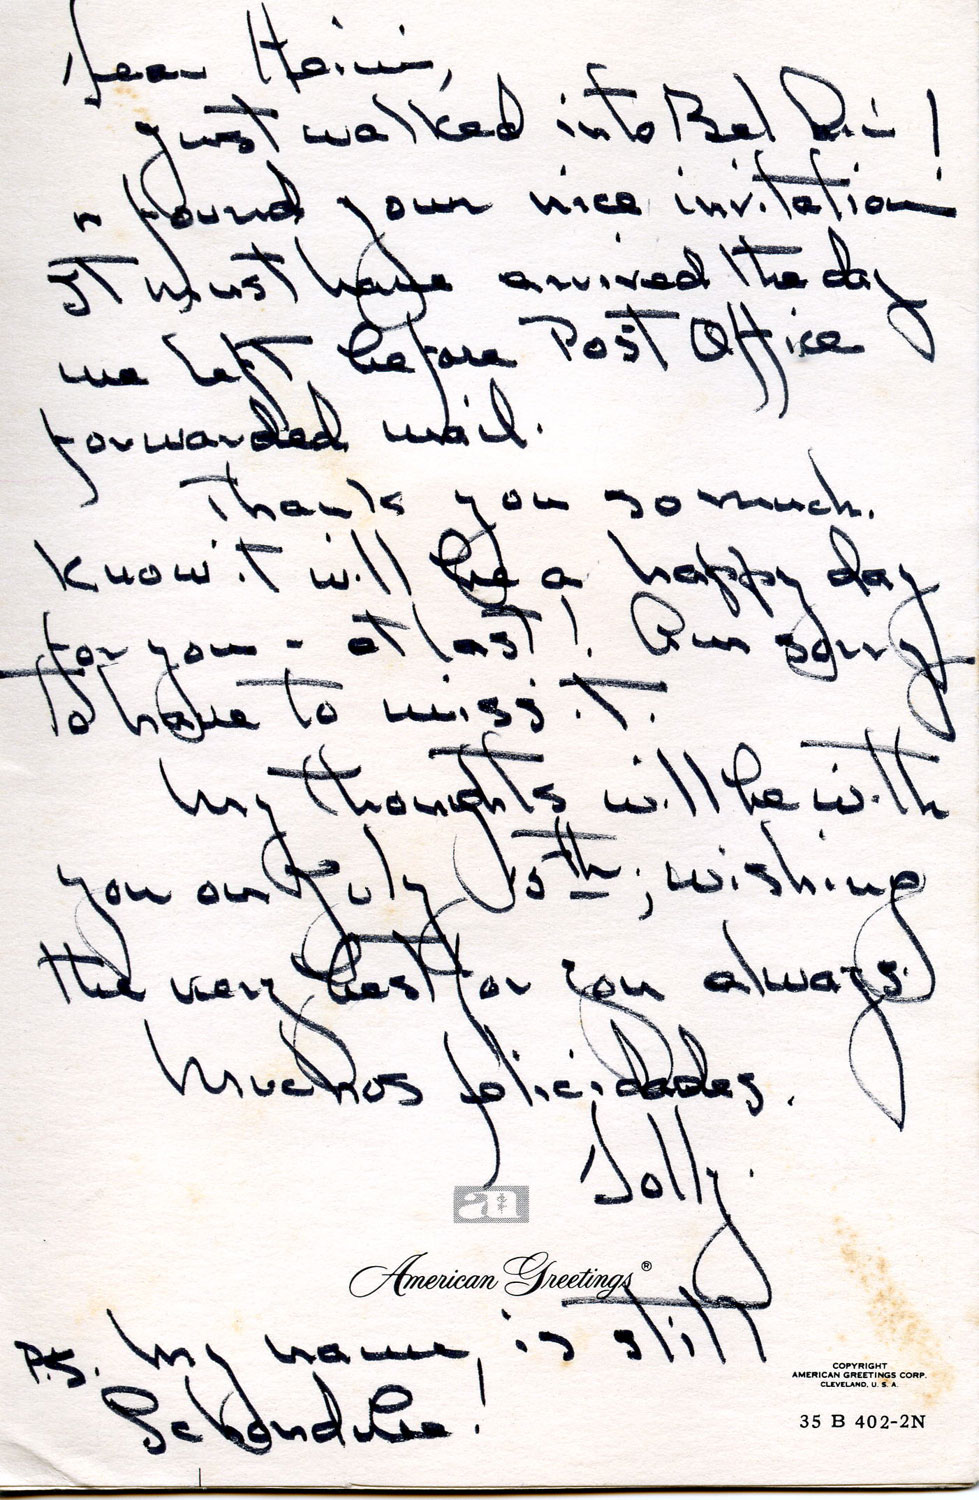 Dear Heini,
Just walked into Bel Air!
n found your nice invitation
It must have arrived the day
we left, before Post Office
forwarded mail.
Thank you so much.
Know it will be a happy day
for you - at last! Am sorry
to have to miss it.
My thoughts will be with
you on July 15th; wishing
the very best for you always.
Muchos felicidades.
Dolly.
American Greetings®
P.S. My name, is still
COPYRIGHT
AMERICAN GREETINGS CORP.
CLEVELAND, U. S. A.
35 B 402-2N